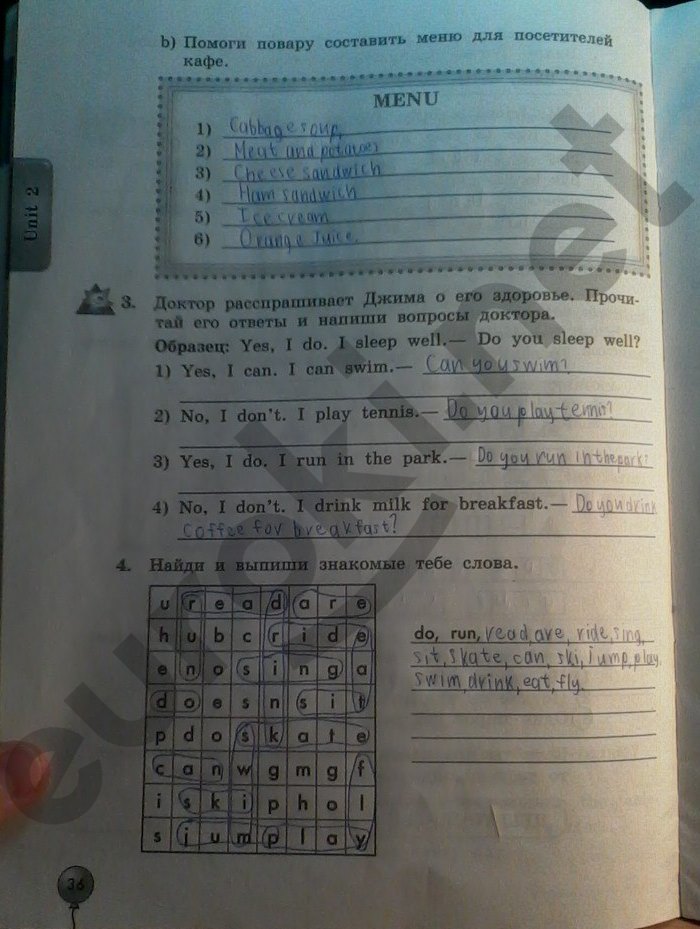 b) Помоги повару составить меню для посетителей
кафе.
MENU
1) Cabbage soup,
2) Meat and potatoes
3) Cheese sandwich
4) Ham sandwich
5) Ice cream
6) Orange Juice.
Unit 2
3. Доктор расспрашивает Джима о его здоровье. Прочи-
тай его ответы и напиши вопросы доктора.
Образец: Yes, I do. I sleep well.— Do you sleep well?
1) Yes, I can. I can swim.— Can you swim?
2) No, I don't. I play tennis.— Do you play tennis?
3) Yes, I do. I run in the park.— Do you run in the park?
4) No, I don't. I drink milk for breakfast.— Do you drink
coffee for breakfast?
4. Найди и выпиши знакомые тебе слова.
u r e a d a r e
h u b c r i d e
e n o s i n g a
d o e s n s i t
p d o s k a t e
c a n w g m g f
i s k i p h o l
s j u m p l a y
do, run, read, are, ride, sing,
sit, skate, can, ski, jump, play,
swim, drink, eat, fly.
36
euroki.net